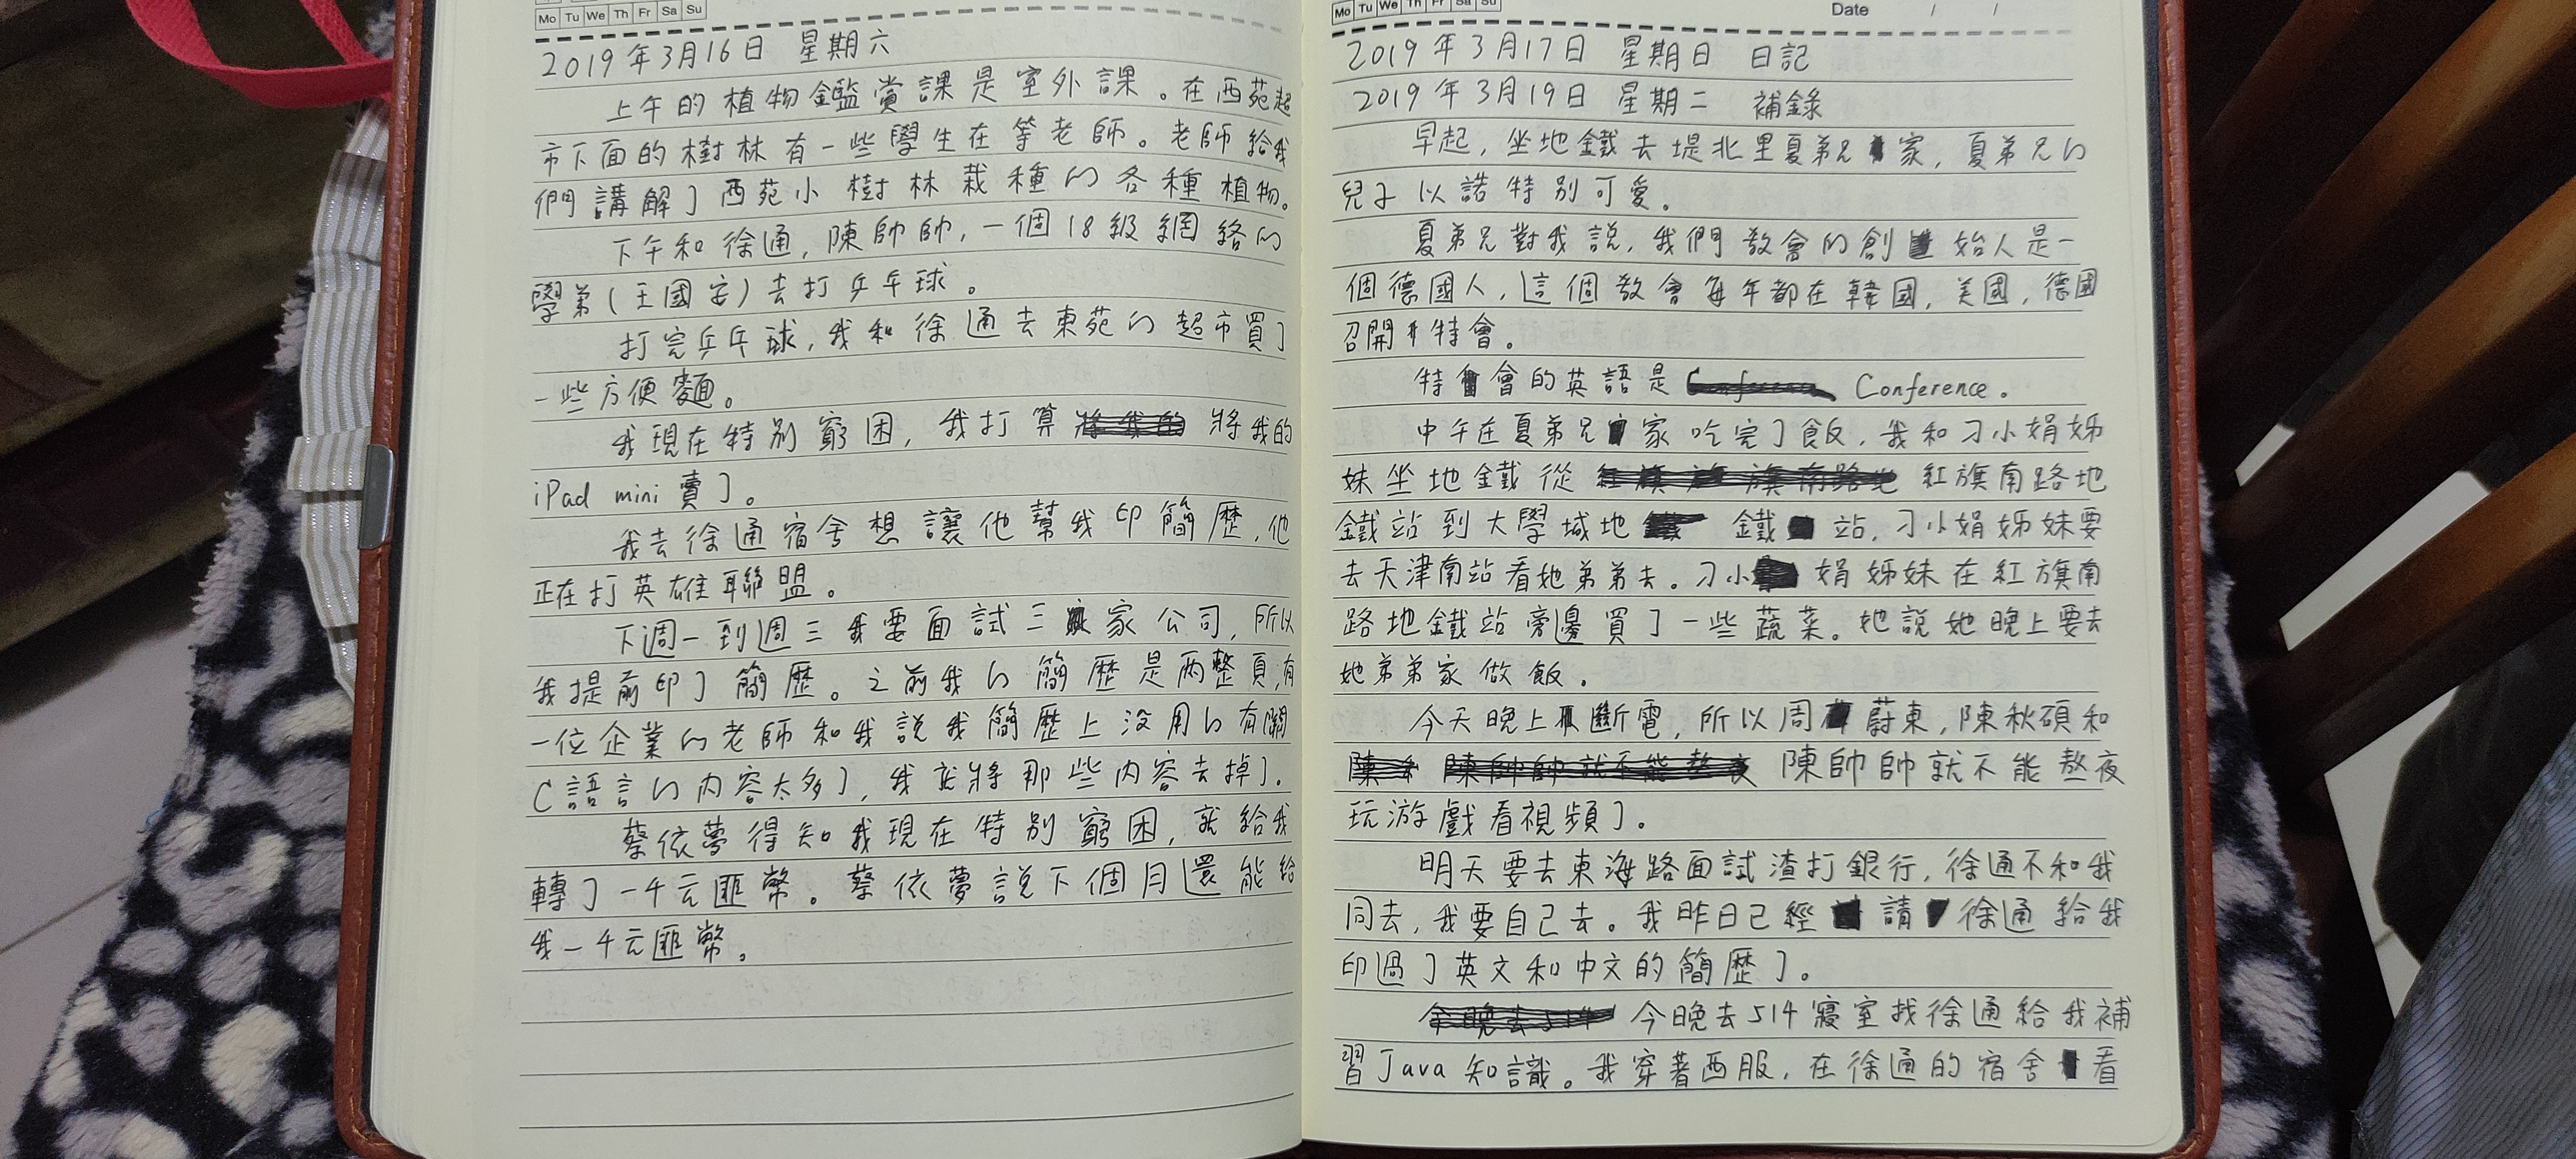 Mo Tu We Th Fr Sa Su
2019年3月16日 星期六
上午的植物鑑賞課是室外課。在西苑超
市下面的樹林有一些學生在等老師。老師給我
們講解了西苑小樹林栽種的各種植物。
下午和徐通，陳帥帥，一個18級網絡的
學弟（王國安）去打乒乓球。
打完乒乓球，我和徐通去東苑的超市買了
一些方便麵。
我現在特別窮困，我打算將我的
iPad mini 賣了。
我去徐通宿舍想讓他幫我印簡歷，他
正在打英雄聯盟。
下週一到週三我要面試三家公司，所以
我提前印了簡歷。之前我的簡歷是兩整頁，有
一位企業的老師和我說我簡歷上沒用的有關
C語言的内容太多了，我就將那些内容去掉了。
蔡依夢得知我現在特別窮困，就給我
轉了一千元匪幣。蔡依夢說下個月還能給
我一千元匪幣。
Mo Tu We Th Fr Sa Su
Date / /
2019年3月17日 星期日 日記
2019年3月19日 星期二 補錄
早起，坐地鐵去堤北里夏弟兄家，夏弟兄的
兒子以諾特別可愛。
夏弟兄對我說，我們教會的創始人是一
個德國人，這個教會每年都在韓國，美國，德國
召開特會。
特會的英語是 Conference.
中午在夏弟兄家吃完了飯，我和刁小娟姊
妹坐地鐵從紅旗南路地
鐵站到大學城地鐵站，刁小娟姊妹要
去天津南站看她弟弟去。刁小娟姊妹在紅旗南
路地鐵站旁邊買了一些蔬菜。她說她晚上要去
她弟弟家做飯。
今天晚上斷電，所以周蔚東，陳秋碩和
陳帥帥就不能熬夜
玩游戲看視頻了。
明天要去東海路面試渣打銀行，徐通不和我
同去，我要自己去。我昨日已經請徐通給我
印過了英文和中文的簡歷了。
今晚去514寢室找徐通給我補
習Java知識。我穿著西服，在徐通的宿舍看